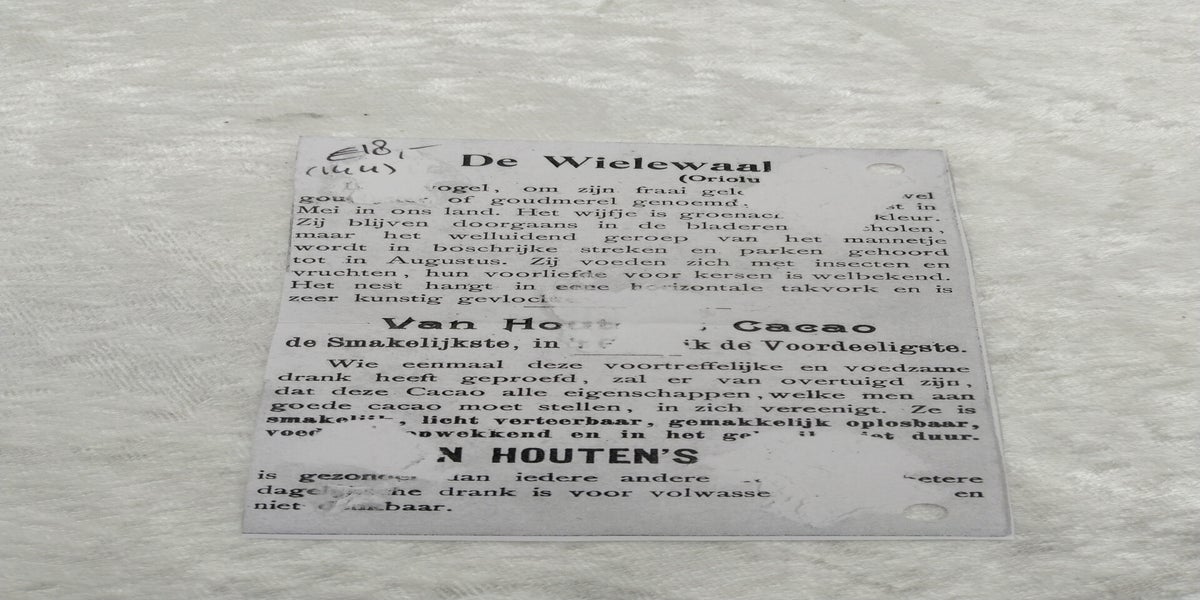 €18,-
De Wielewaal
(Oriolu
vogel, om zijn fraai wel
of goudmerel genoemd, in
Mei in ons land. Het wijfje is kleur.
Zij blijven doorgaans in de bladeren
maar het welluidend geroep van het mannetje
wordt in boschrijke streken en parken gehoord
tot in Augustus. Zij voeden zich met insecten en
vruchten, hun voorliefde voor kersen is welbekend.
Het nest hangt in eene horizontale takvork en is
zeer kunstig
Van Cacao
de Smakelijkste, in de Voordeeligste.
Wie eenmaal deze voortreffelijke en voedzame
drank heeft geproefd, zal er van overtuigd zijn,
dat deze Cacao alle eigenschappen, welke men aan
goede cacao moet stellen, in zich vereenigt. Ze is
smakelijk, licht verteerbaar, gemakkelijk oplosbaar,
en in het duur.
N HOUTEN'S
is dan iedere andere
drank is voor en
niet